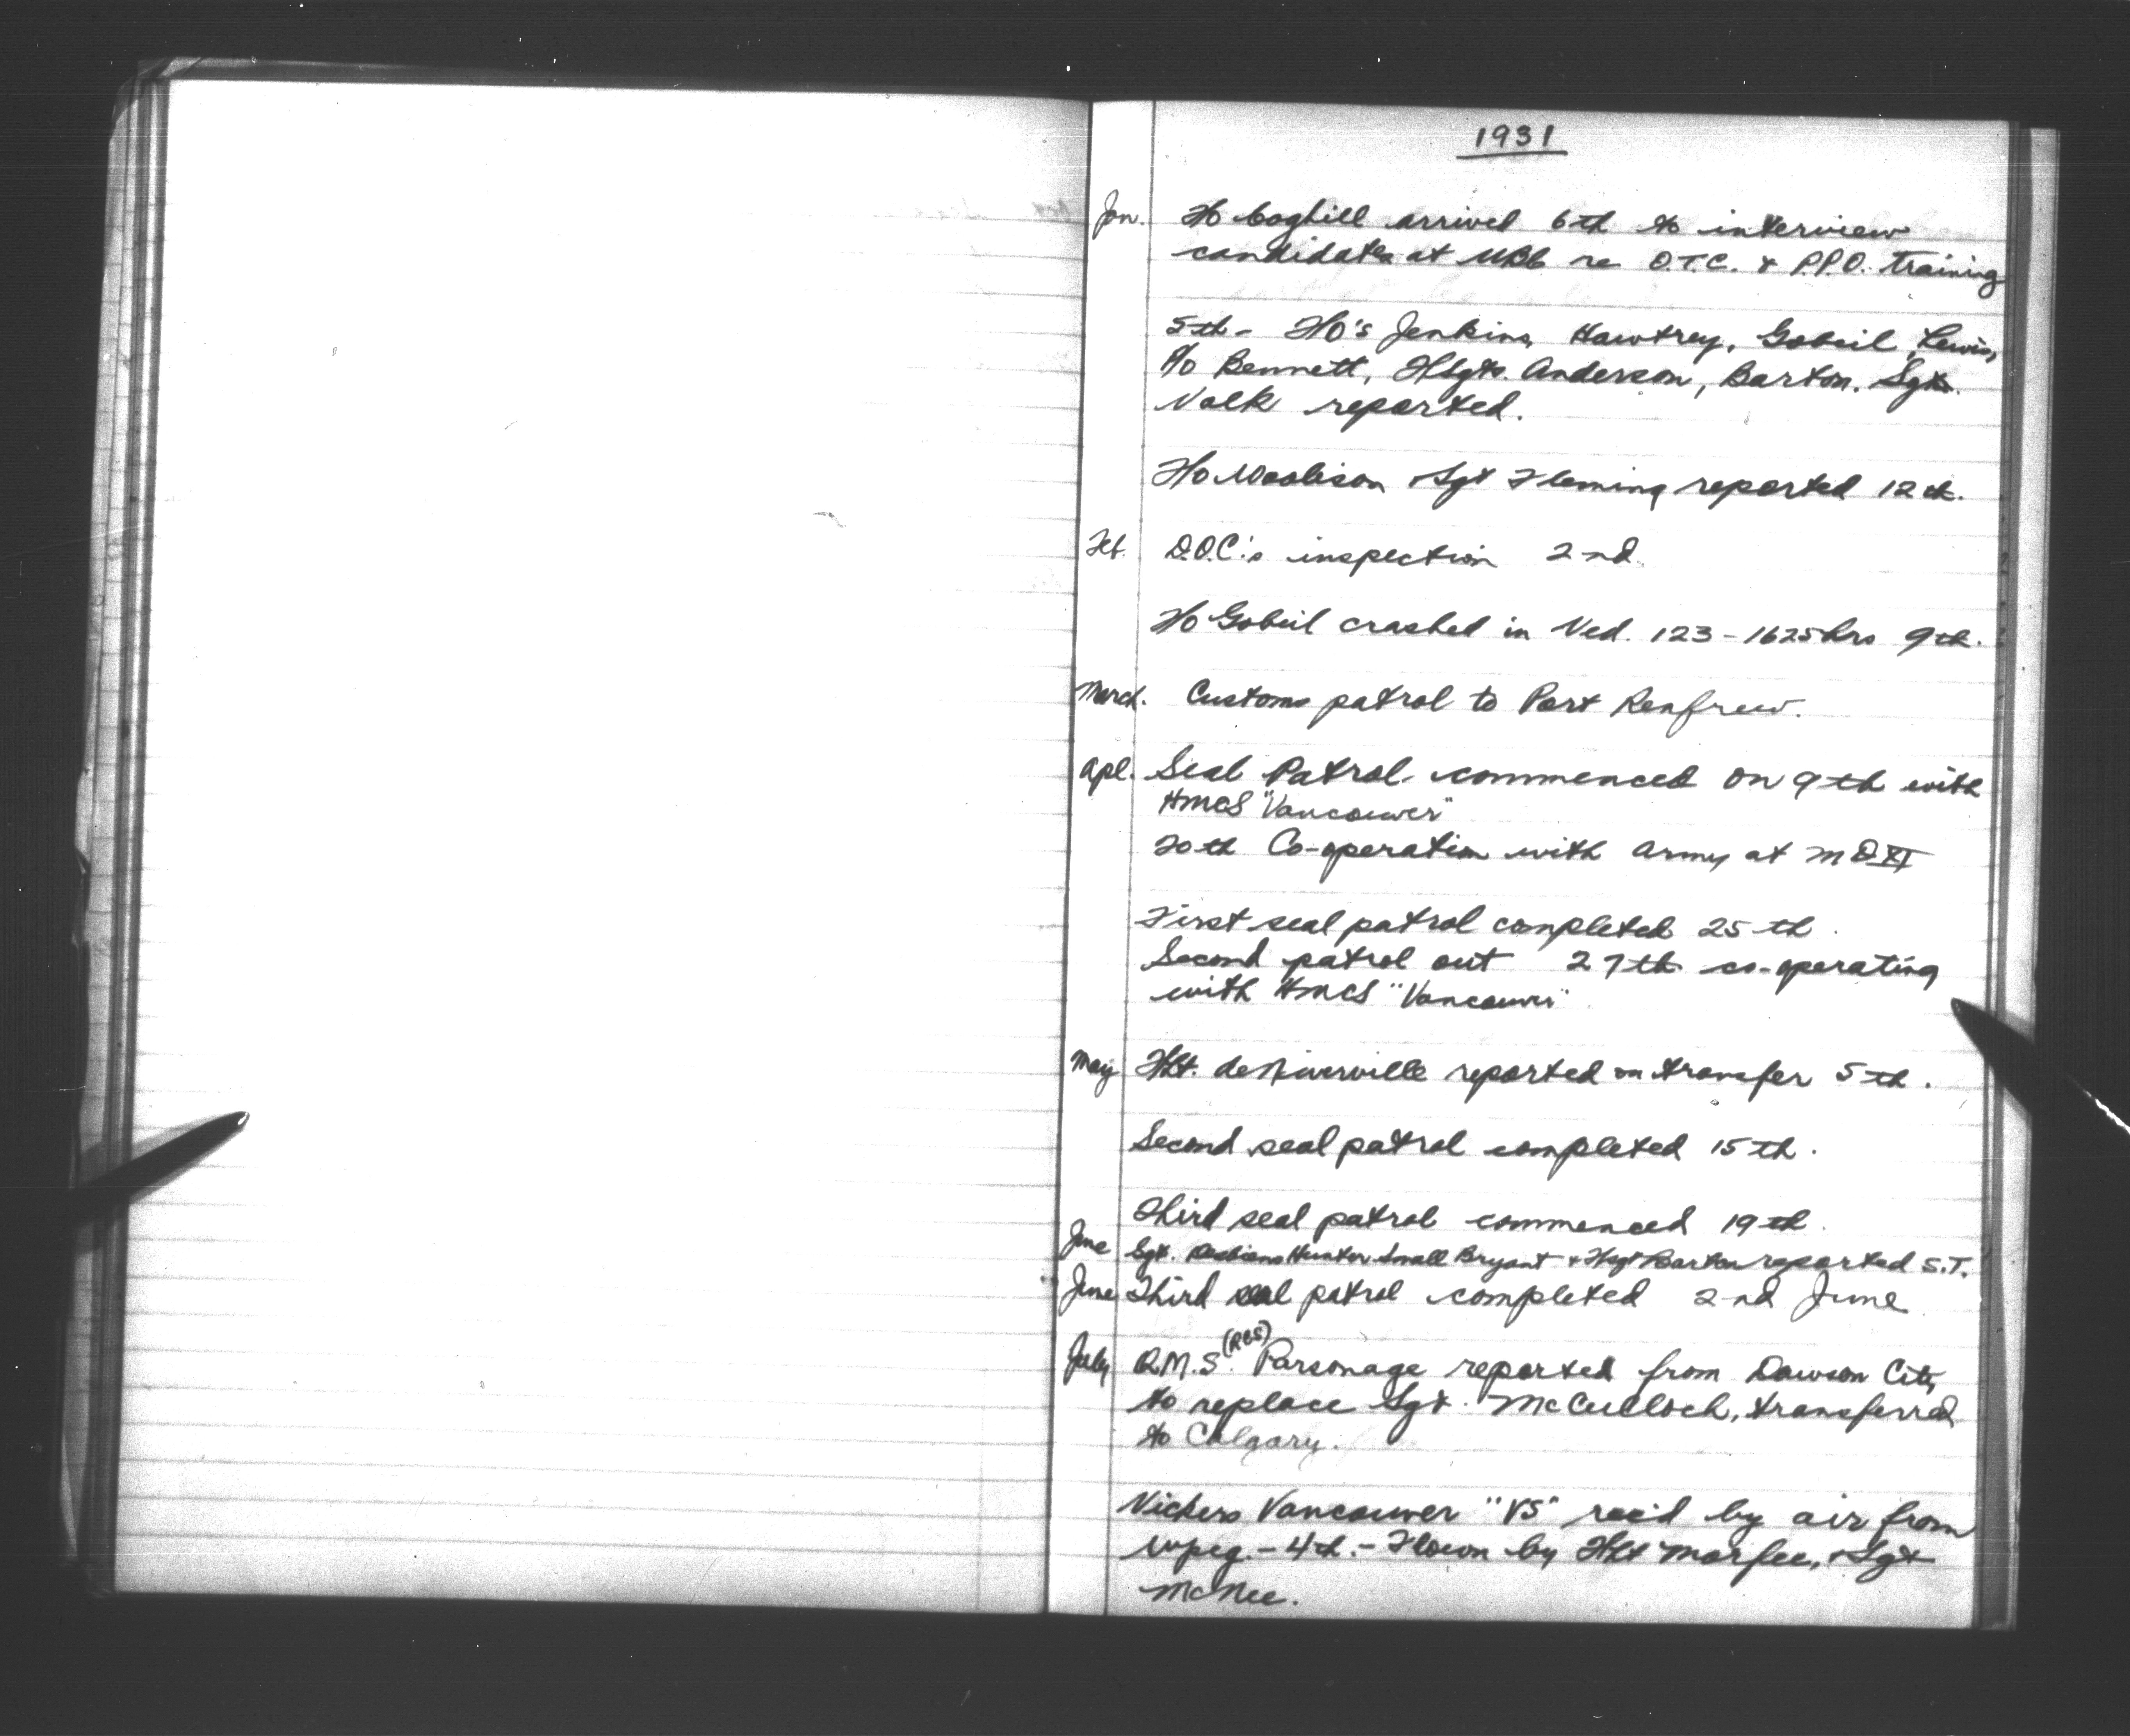 1931
Jan. F/O Coghill arrived 6th to interview
candidates at UBC re O.T.C. & P.P.O. training
5th - F/O's Jenkins, Hawtrey, Gobeil, Lewis,
P/O Bennett, F/Sgts. Anderson, Barton. Sgt.
Volk reported.
F/O Woolison & Sgt Fleming reported 12th.
Feb. D.O.C.'s inspection 2nd.
F/O Gobeil crashed in Ved. 123 - 1625 hrs 9th.
March. Customs patrol to Port Renfrew.
Apl. Seal Patrol commenced on 9th with
HMCS "Vancouver"
20th Co-operation with Army at MD XI
First seal patrol completed 25th.
Second patrol out 27th co-operating
with HMCS "Vancouver"
May F/Lt. deNiverville reported on transfer 5th.
Second seal patrol completed 15th.
Third seal patrol commenced 19th.
June Sgt. Hunter Small Bryant & F/Sgt Barton reported S.T.
June Third seal patrol completed 2nd June
July Q.M.S. (RCS) Parsonage reported from Dawson City
to replace Sgt. McCulloch, transferred
to Calgary.
Vickers Vancouver "VS" rec'd by air from
Wpeg. - 4th. - Flown by F/Lt Morfee, & Sgt
McNee.